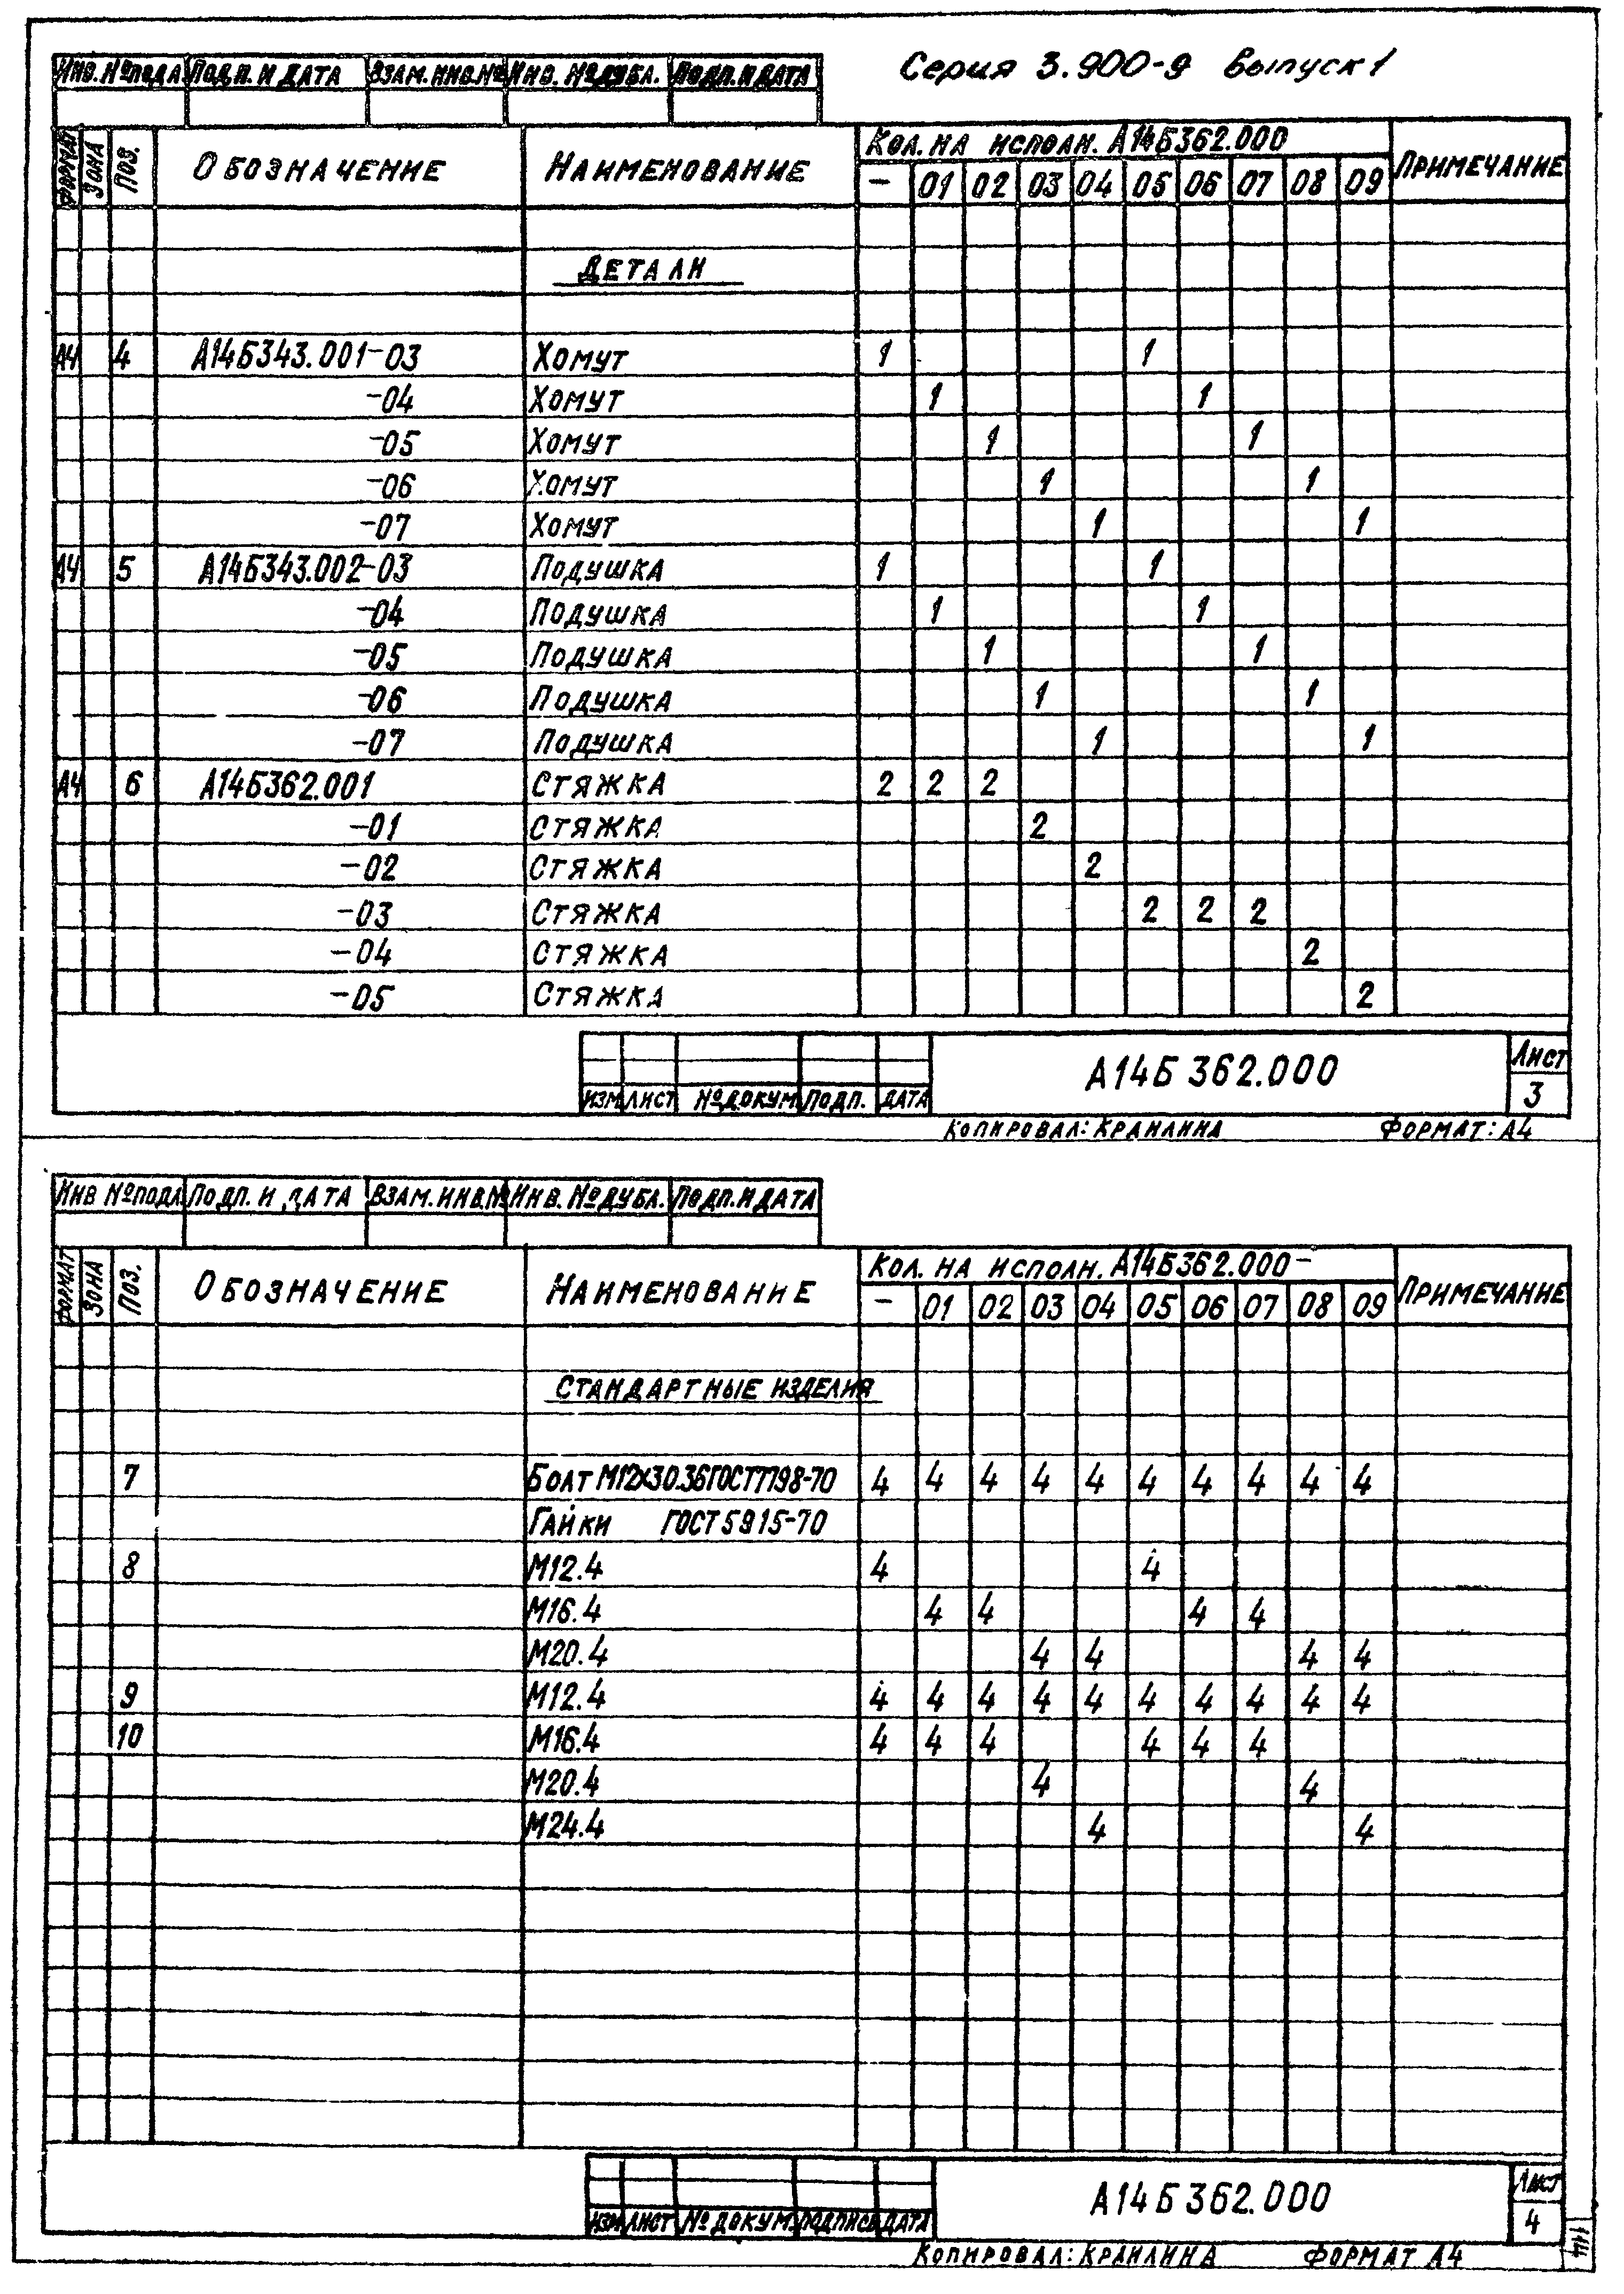 Серия 3.900-9 Выпуск 1
Инв. № подл. Подп. и дата Взам. инв. № Инв. № дубл. Подп. и дата
Формат Зона Поз. Обозначение Наименование Кол. на исполн. А14Б362.000 Примечание
— 01 02 03 04 05 06 07 08 09
Детали
А4 4 А14Б343.001-03 Хомут 1 1
-04 Хомут 1 1
-05 Хомут 1 1
-06 Хомут 1 1
-07 Хомут 1 1
А4 5 А14Б343.002-03 Подушка 1 1
-04 Подушка 1 1
-05 Подушка 1 1
-06 Подушка 1 1
-07 Подушка 1 1
А4 6 А14Б362.001 Стяжка 2 2 2
-01 Стяжка 2
-02 Стяжка 2
-03 Стяжка 2 2 2
-04 Стяжка 2
-05 Стяжка 2
А14Б 362.000 Лист 3
Изм Лист № докум Подп. Дата
Копировал: Краилина Формат: А4
Инв № подл Подп. и дата Взам. инв. № Инв. № дубл. Подп. и дата
Формат Зона Поз. Обозначение Наименование Кол. на исполн. А14Б362.000— Примечание
— 01 02 03 04 05 06 07 08 09
Стандартные изделия
7 Болт М12х30.36 ГОСТ 7798-70 4 4 4 4 4 4 4 4 4 4
Гайки ГОСТ 5915-70
8 М12.4 4 4
М16.4 4 4 4 4
М20.4 4 4 4 4
9 М12.4 4 4 4 4 4 4 4 4 4 4
10 М16.4 4 4 4 4 4 4
М20.4 4 4
М24.4 4 4
А14Б 362.000 Лист 4
Изм Лист № докум. Подпись Дата
Копировал: Краилина Формат А4
114